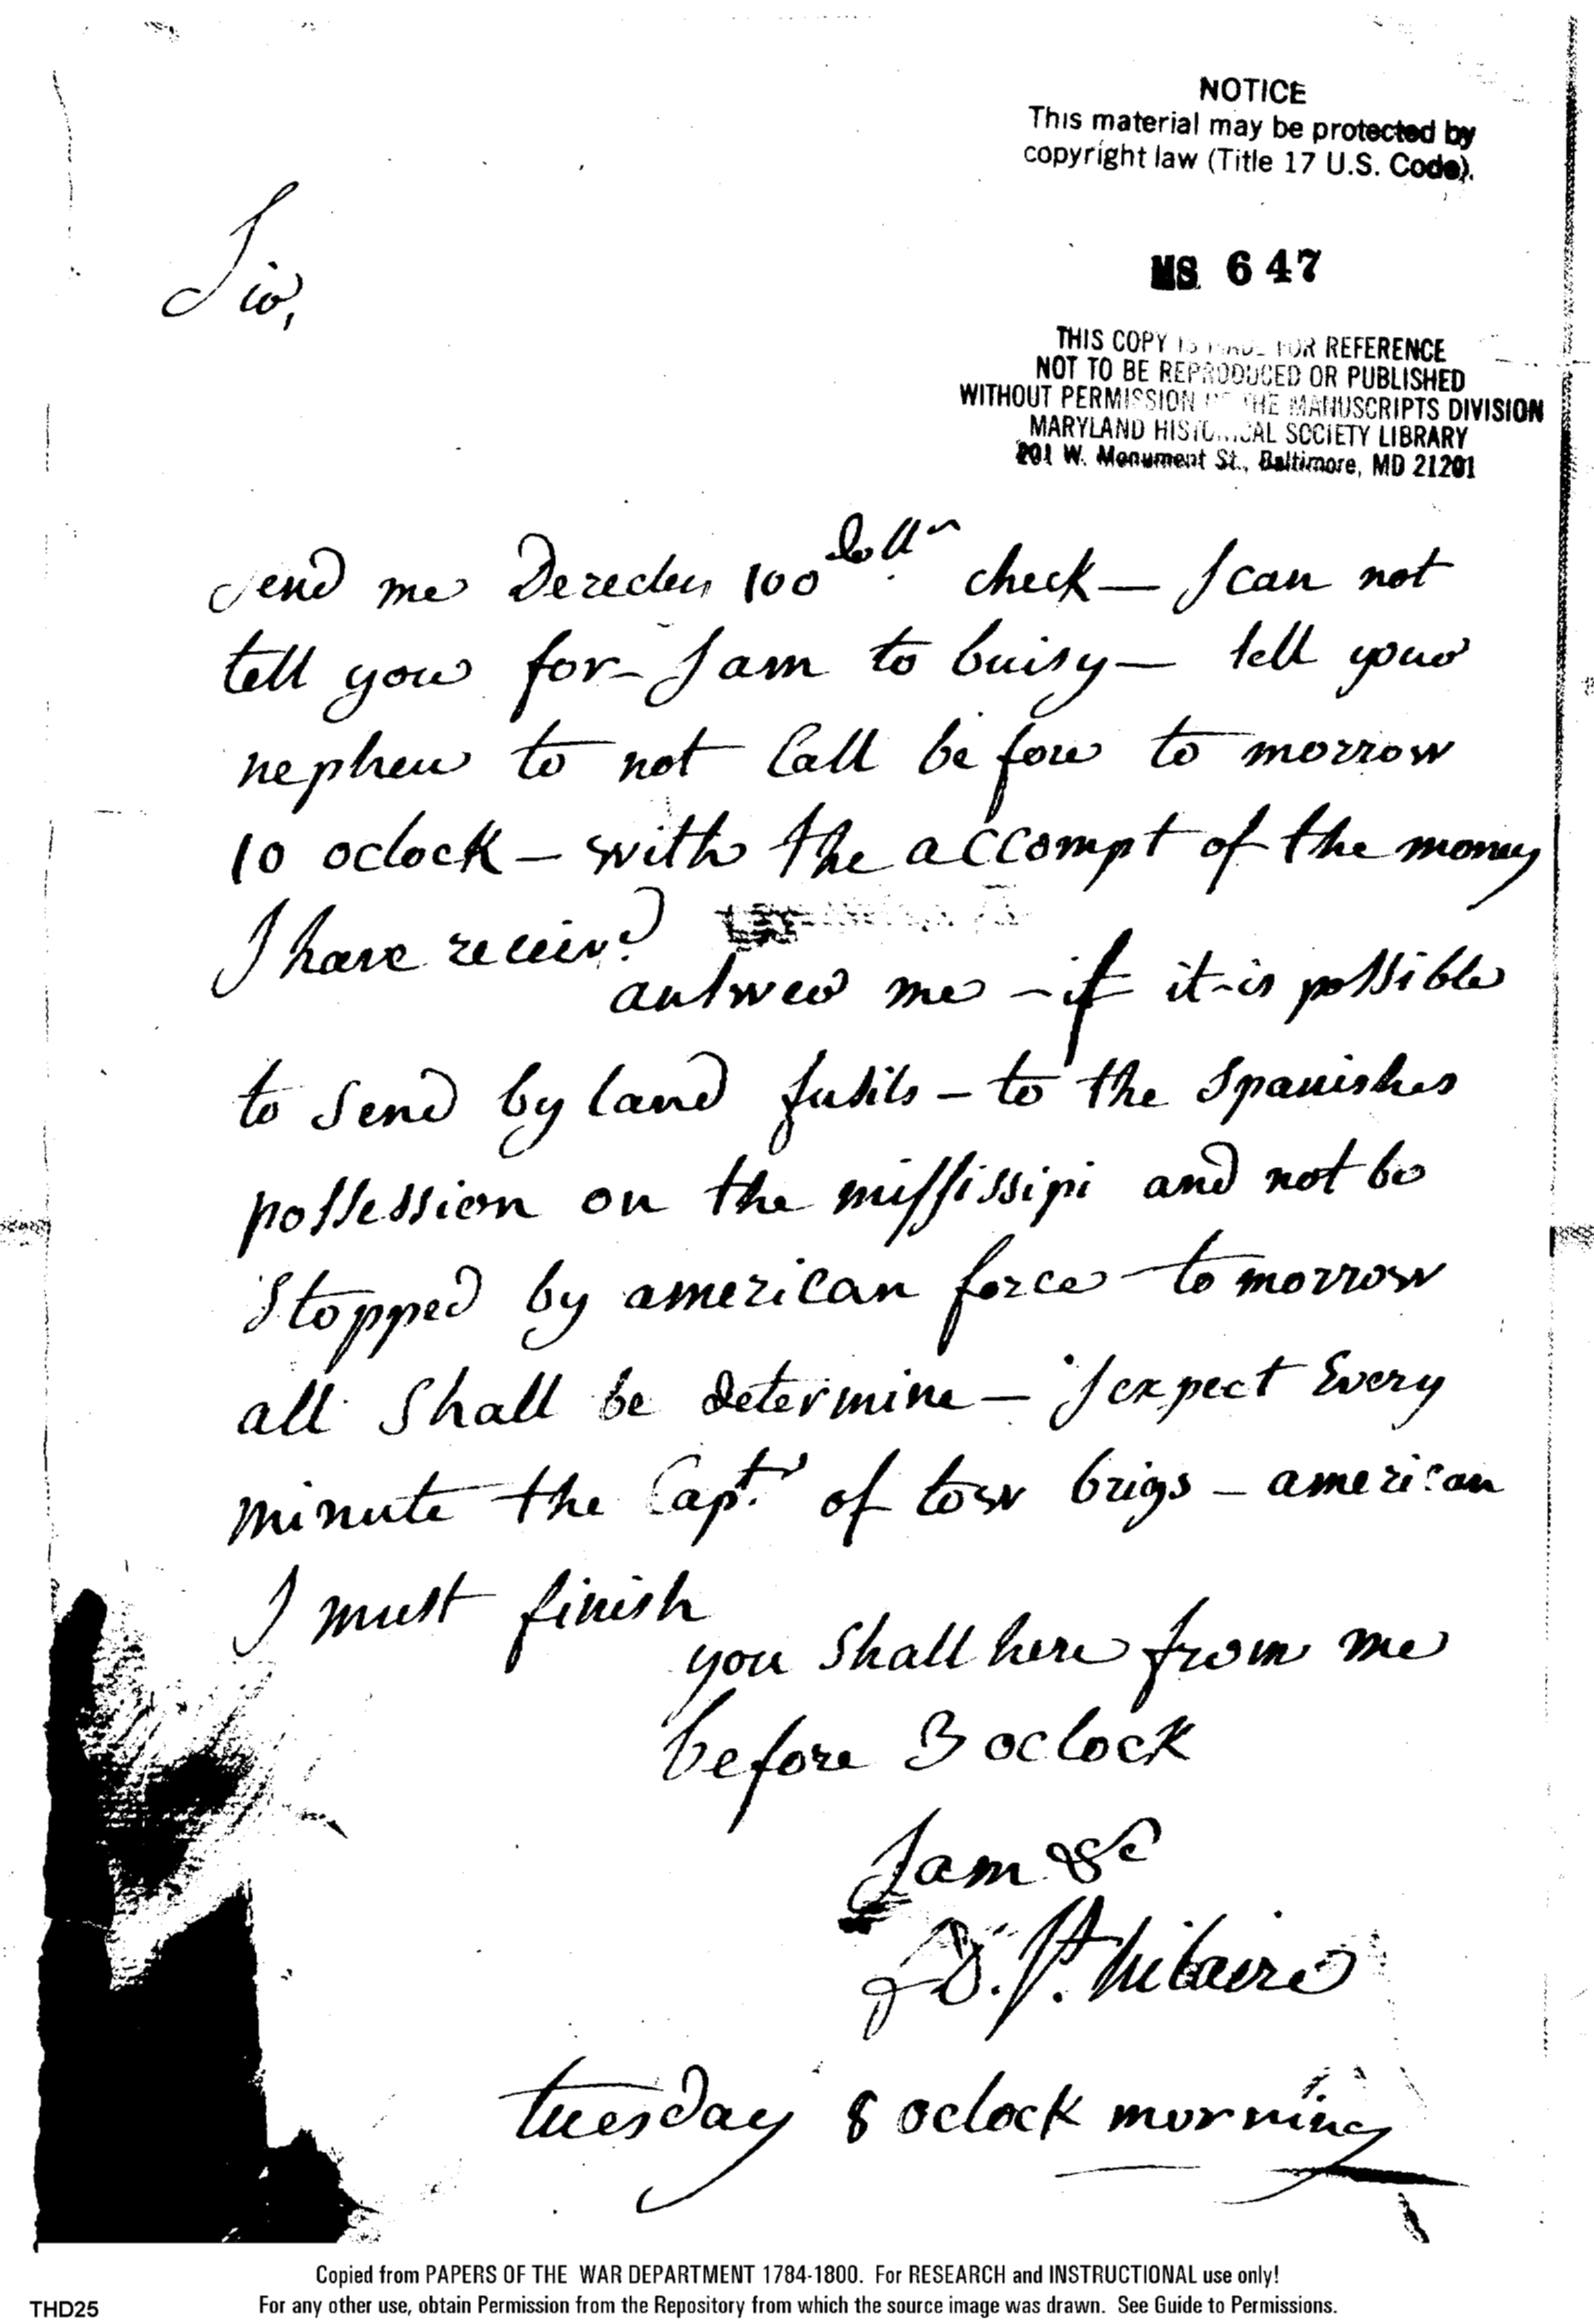 NOTICE
This material may be protected by
copyright law (Title 17 U.S. Code).
MS 647
THIS COPY IS MADE FOR REFERENCE
NOT TO BE REPRODUCED OR PUBLISHED
WITHOUT PERMISSION OF THE MANUSCRIPTS DIVISION
MARYLAND HISTORICAL SOCIETY LIBRARY
201 W. Monument St., Baltimore, MD 21201
Sir,
Send me 100 Dollrs check — I can not
tell you for - I am to buisy — tell your
nepheu to not Call before to morrow
10 oclock — with the accompt of the money
I have receivd
answer me — if it is possible
to Send by land fusils — to the Spanishes
possession on the missississipi and not be
Stopped by american force to morrow
all Shall be determine — I expect Every
minute the Capt. of tow brigs — american
I must finish
you Shall here from me
before 3 oclock
I am &c
D. St. hilaire
tuesday 8 oclock morning
Copied from PAPERS OF THE WAR DEPARTMENT 1784-1800. For RESEARCH and INSTRUCTIONAL use only!
THD25 For any other use, obtain Permission from the Repository from which the source image was drawn. See Guide to Permissions.